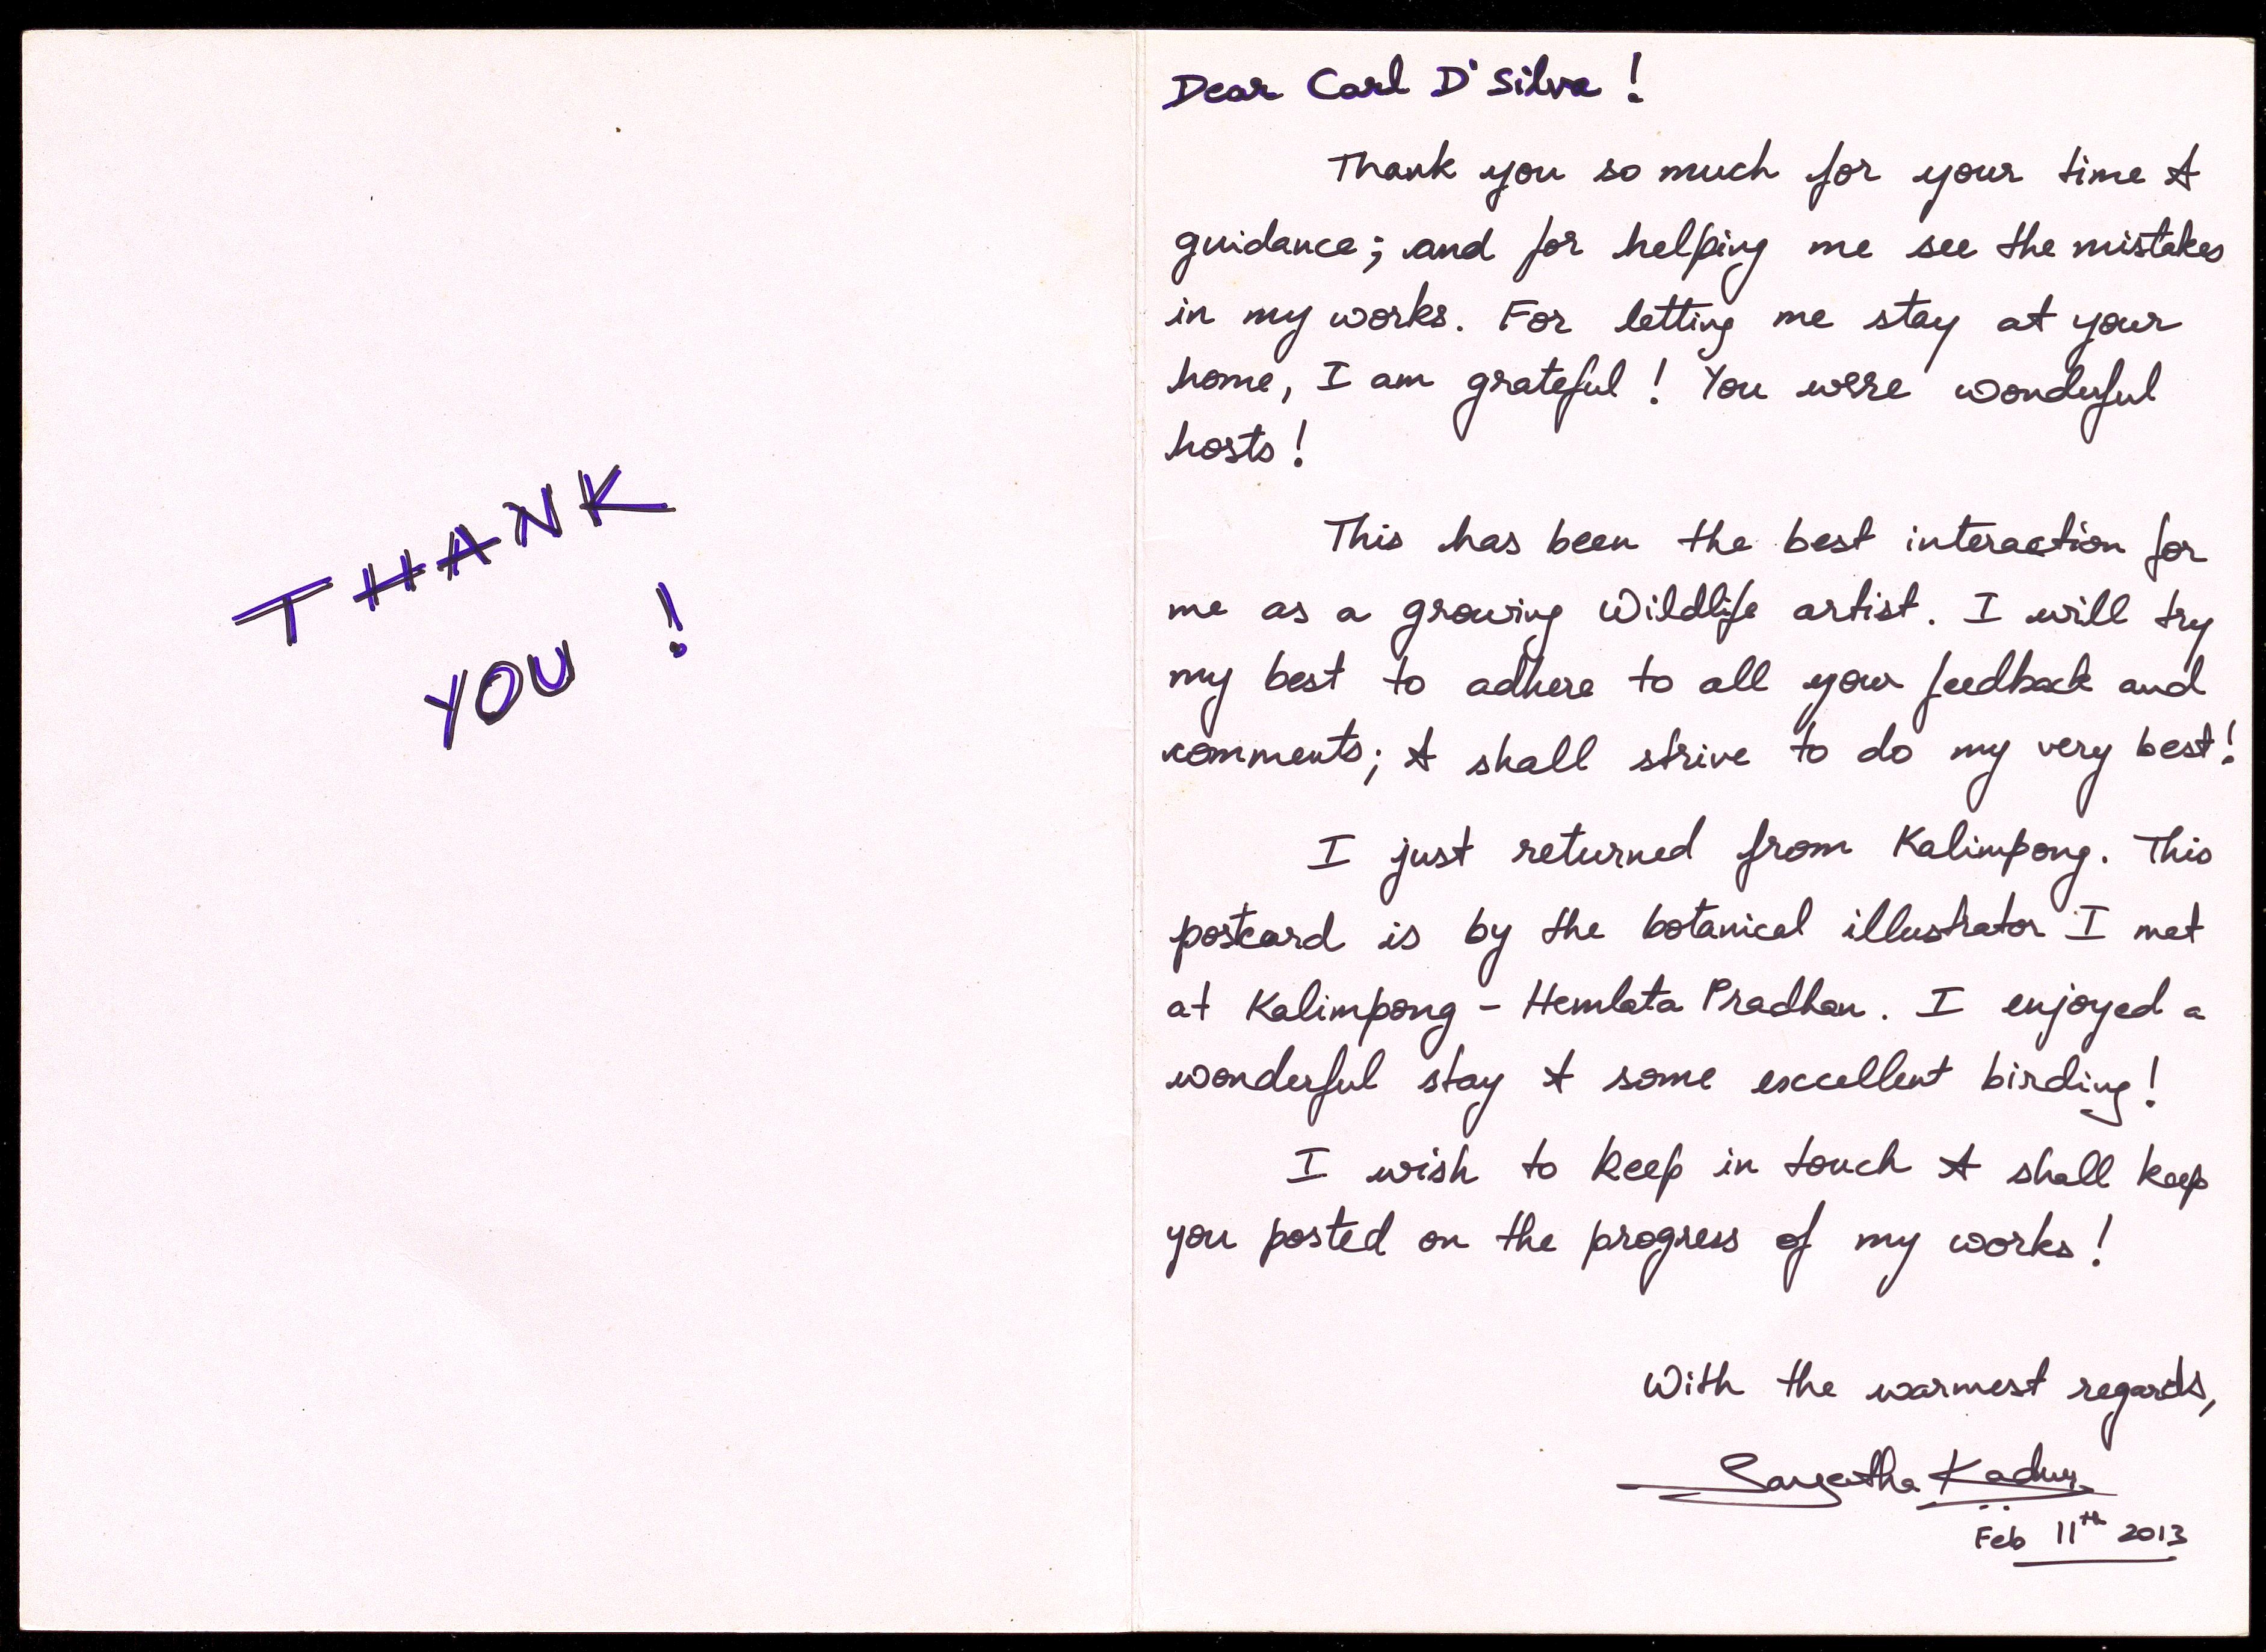 THANK
YOU !
Dear Carl D'Silva !
Thank you so much for your time &
guidance; and for helping me see the mistakes
in my works. For letting me stay at your
home, I am grateful ! You were wonderful
hosts !
This has been the best interaction for
me as a growing Wildlife artist. I will try
my best to adhere to all your feedback and
comments; & shall strive to do my very best!
I just returned from Kalimpong. This
postcard is by the botanical illustrator I met
at Kalimpong - Hemlata Pradhan. I enjoyed a
wonderful stay & some excellent birding!
I wish to keep in touch & shall keep
you posted on the progress of my works !
With the warmest regards,
Sangeetha Kadur
Feb 11th 2013